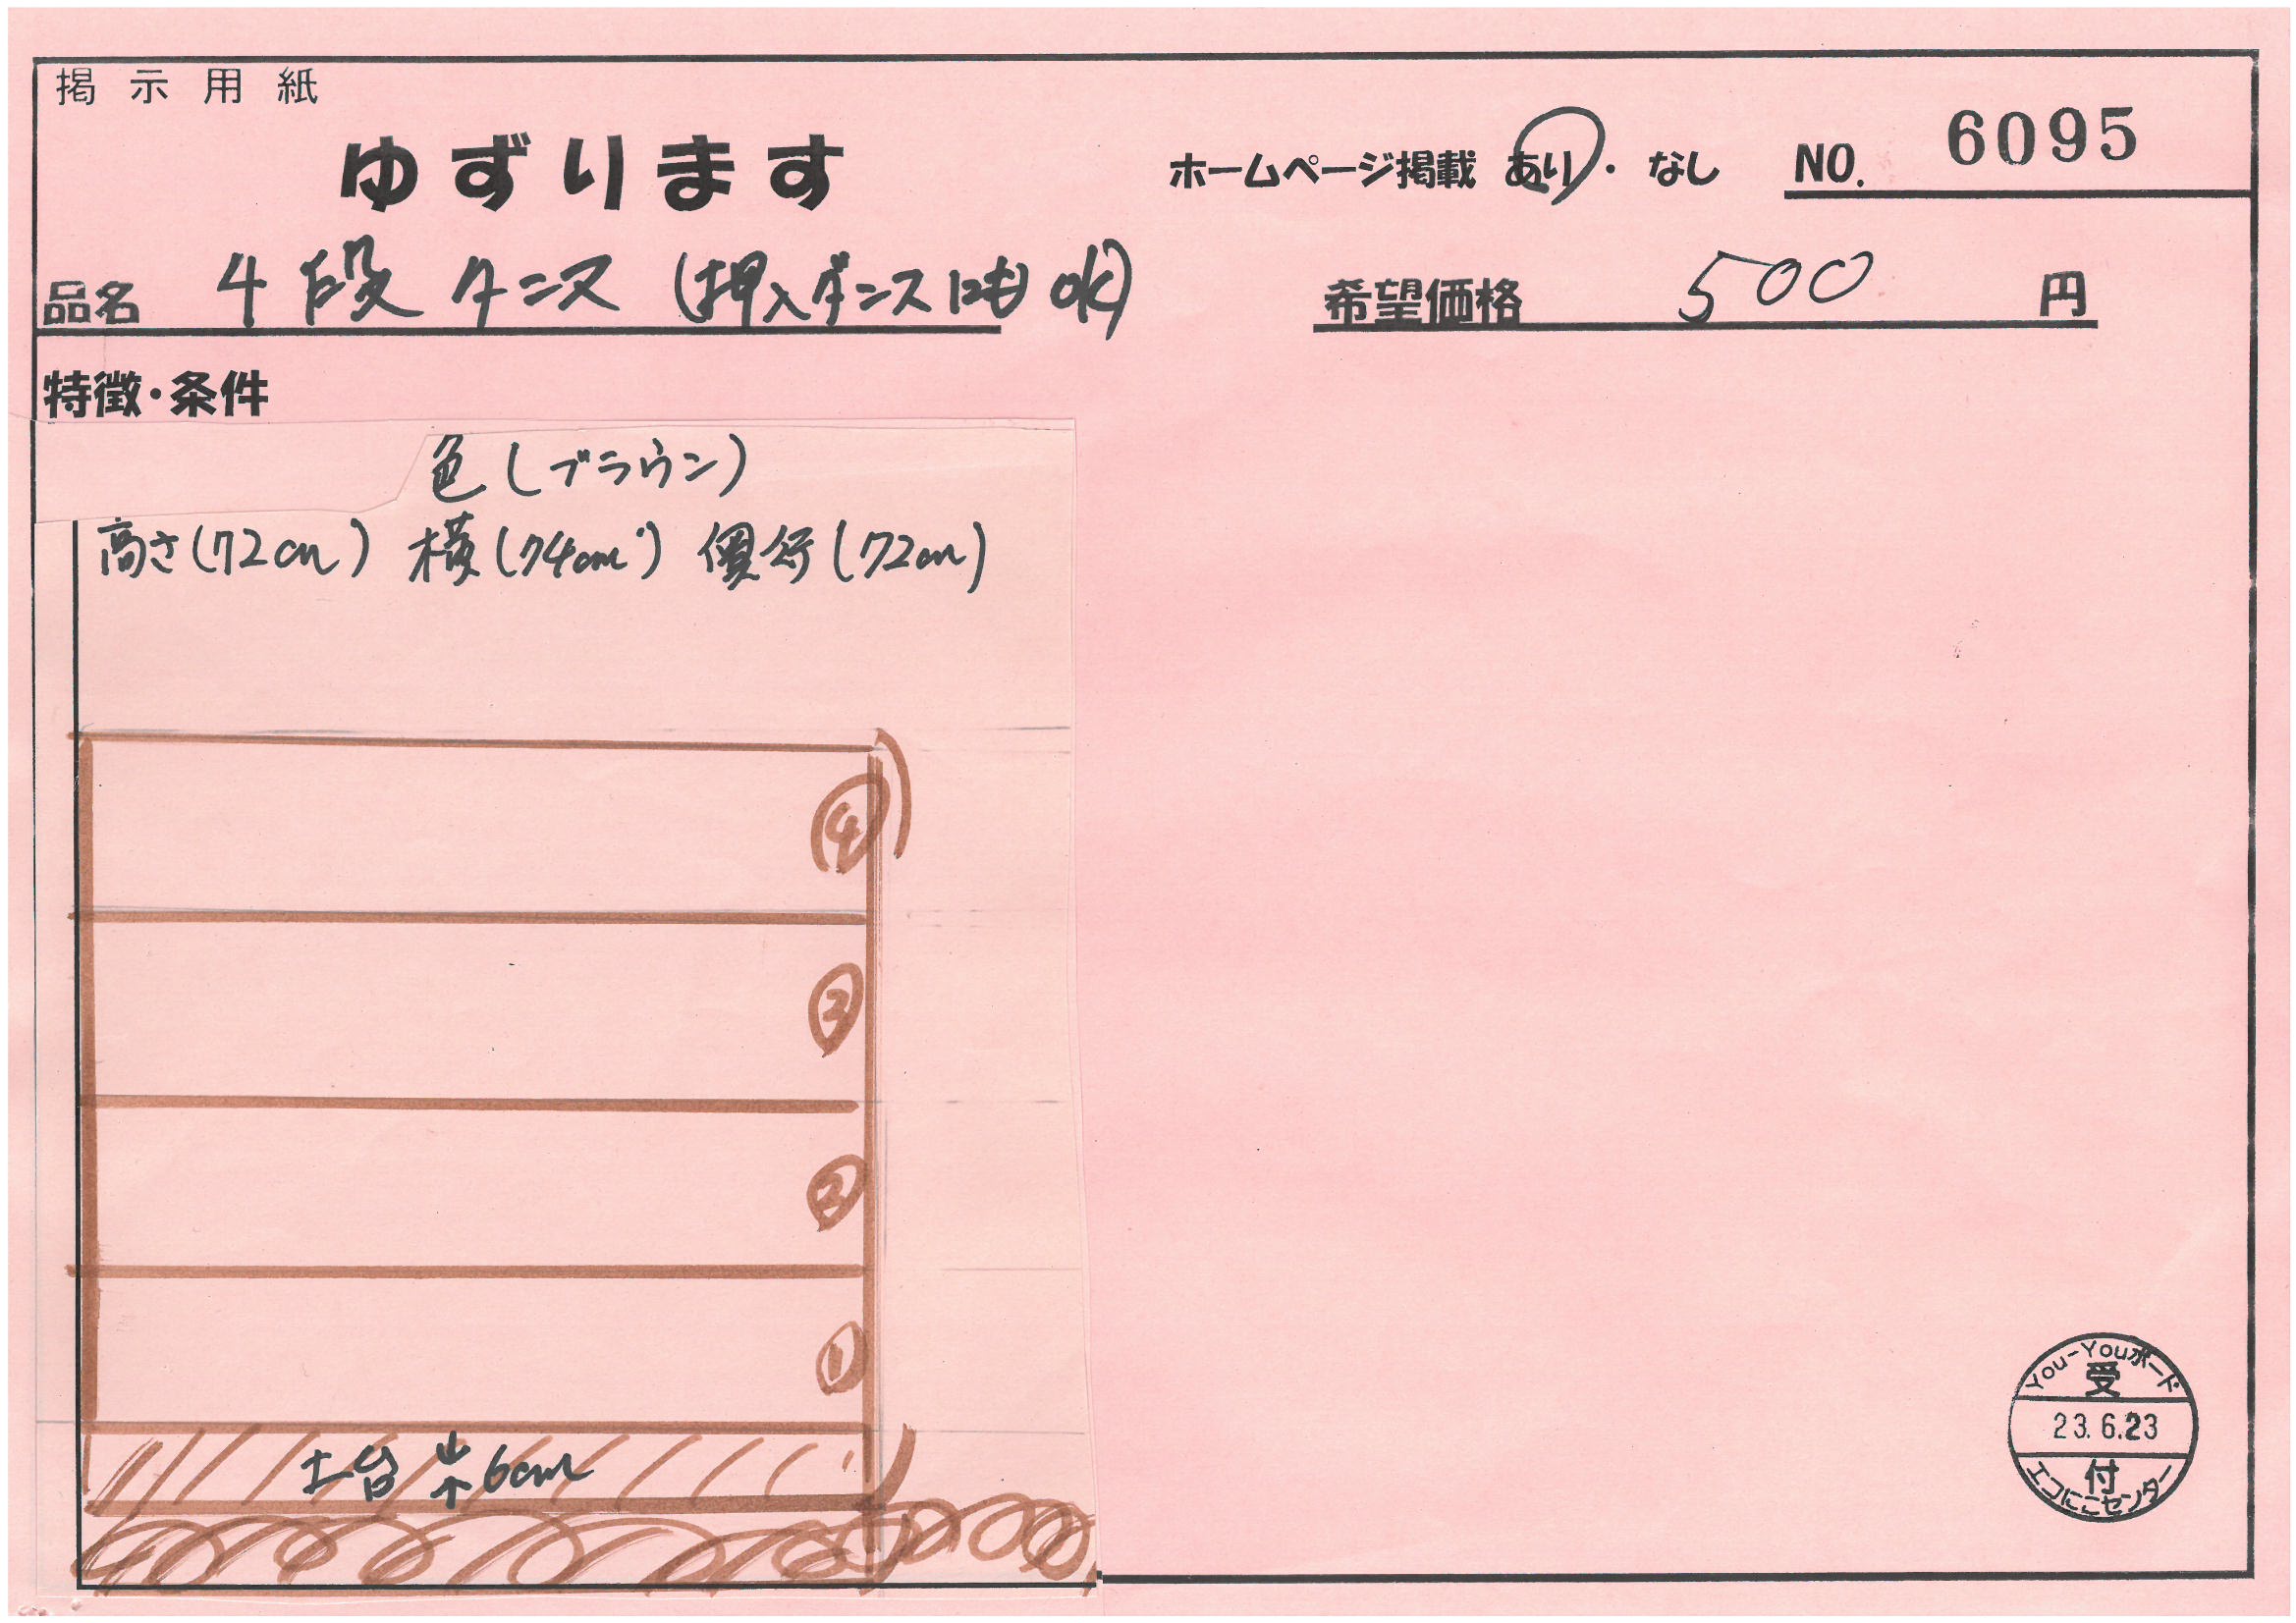 掲示用紙
ゆずります
ホームページ掲載 あり・なし NO. 6095
品名 4段タンス (押入ダンスにもOK)
希望価格 500 円
特徴・条件
色(ブラウン)
高さ(72cm) 横(74cm) 奥行(72cm)
④
③
②
①
土台 6cm
You-Youボード
受
23.6.23
付
エコにこセンター